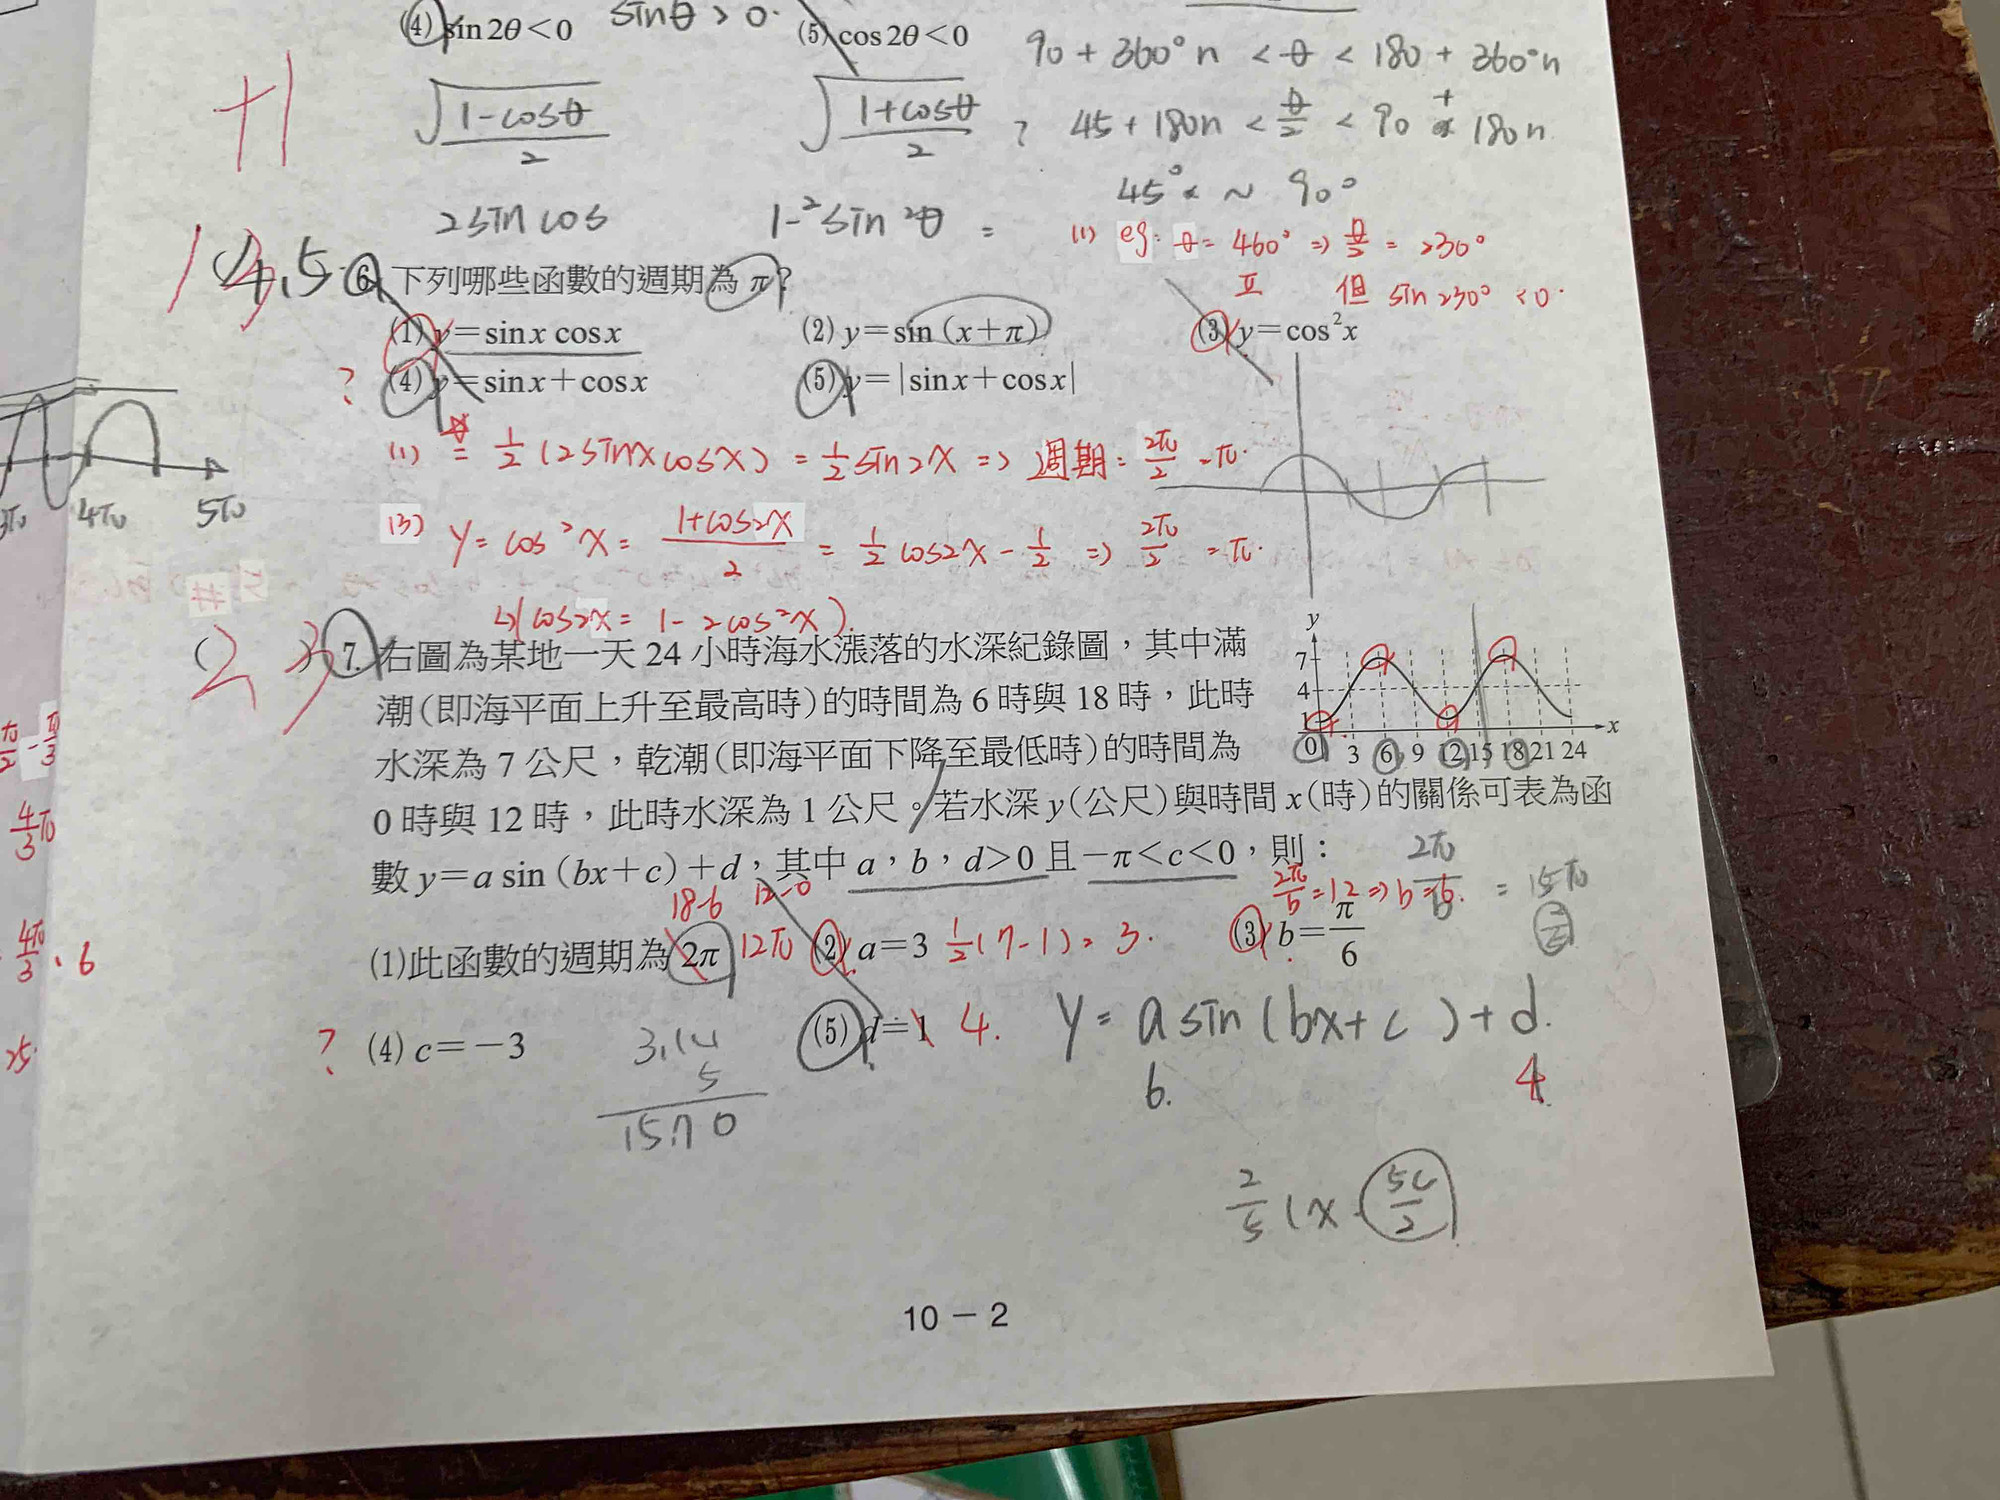 (4) sin2θ<0 sinθ > 0. (5) cos2θ<0
90 + 360°n < θ < 180 + 360°n
+1
√(1-cosθ)/2 √(1+cosθ)/2 ?
45 + 180n < θ/2 < 90 + 180n
45° ~ 90°
2 sin cos 1-2sin2θ =
(1) eg: θ = 460° => θ/2 = 230°
II 但 sin 230° < 0.
4,5 6. 下列哪些函數的週期為 π?
(1) y=sinx cosx (2) y=sin(x+π) (3) y=cos²x
? (4) y=sinx+cosx (5) y=|sinx+cosx|
(1) = 1/2 (2sinxcosx) = 1/2 sin2x => 週期: 2π/2 = π.
3π 4π 5π
(3) y = cos²x = (1+cos2x)/2 = 1/2 cos2x - 1/2 => 2π/2 = π.
#
↳(cos2x = 1 - 2cos²x).
2 3 7. 右圖為某地一天 24 小時海水漲落的水深紀錄圖,其中滿
潮(即海平面上升至最高時)的時間為 6 時與 18 時,此時
水深為 7 公尺,乾潮(即海平面下降至最低時)的時間為
0 時與 12 時,此時水深為 1 公尺。若水深 y(公尺)與時間 x(時)的關係可表為函
數 y=a sin (bx+c)+d,其中 a,b,d>0 且 −π<c<0,則:
y
7
4
1
0 3 6 9 12 15 18 21 24 x
π/2 - π/3
4/3 π
4π/3 . 6
25.
2π/b = 15π/2
18-6 12-0 2π/b = 12 => b = 6.
(1)此函數的週期為 2π 12π (2) a=3 1/2(7-1) = 3. (3) b=π/6
? (4) c=−3 (5) d=1 4.
3.14
5
15.70
y = a sin (bx+c) + d.
6. 4.
2/5 (x 5c/2
10 − 2